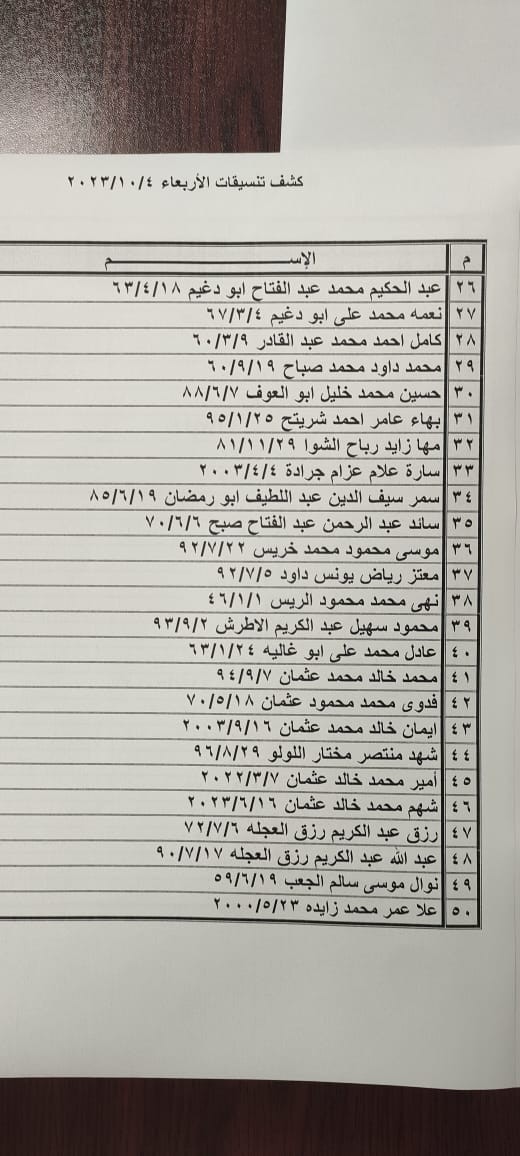 كشف تنسيقات الأربعاء ٢٠٢٣/١٠/٤
م الإســـــــــــــــــــــــم
٢٦ عبد الحكيم محمد عبد الفتاح ابو دغيم ٦٣/٤/١٨
٢٧ نعمه محمد على ابو دغيم ٦٧/٣/٤
٢٨ كامل احمد محمد عبد القادر ٦٠/٣/٩
٢٩ محمد داود محمد صباح ٦٠/٩/١٩
٣٠ حسين محمد خليل ابو العوف ٨٨/٦/٧
٣١ بهاء عامر احمد شريتح ٩٥/١/٢٥
٣٢ مها زايد رباح الشوا ٨١/١١/٢٩
٣٣ سارة علام عزام جرادة ٢٠٠٣/٤/٤
٣٤ سمر سيف الدين عبد اللطيف ابو رمضان ٨٥/٦/١٩
٣٥ سائد عبد الرحمن عبد الفتاح صبح ٧٠/٦/٦
٣٦ موسى محمود محمد خريس ٩٢/٧/٢٢
٣٧ معتز رياض يونس داود ٩٢/٧/٥
٣٨ نهى محمد محمود الريس ٤٦/١/١
٣٩ محمود سهيل عبد الكريم الاطرش ٩٣/٩/٢
٤٠ عادل محمد على ابو غاليه ٦٣/١/٢٤
٤١ محمد خالد محمد عثمان ٩٤/٩/٧
٤٢ فدوى محمد محمود عثمان ٧٠/٥/١٨
٤٣ ايمان خالد محمد عثمان ٢٠٠٣/٩/١٦
٤٤ شهد منتصر مختار اللولو ٩٦/٨/٢٩
٤٥ أمير محمد خالد عثمان ٢٠٢٢/٣/٧
٤٦ شهم محمد خالد عثمان ٢٠٢٣/٦/١٦
٤٧ رزق عبد الكريم رزق العجله ٧٢/٧/٦
٤٨ عبد الله عبد الكريم رزق العجله ٩٠/٧/١٧
٤٩ نوال موسى سالم الجعب ٥٩/٦/١٩
٥٠ علا عمر محمد زايده ٢٠٠٠/٥/٢٣